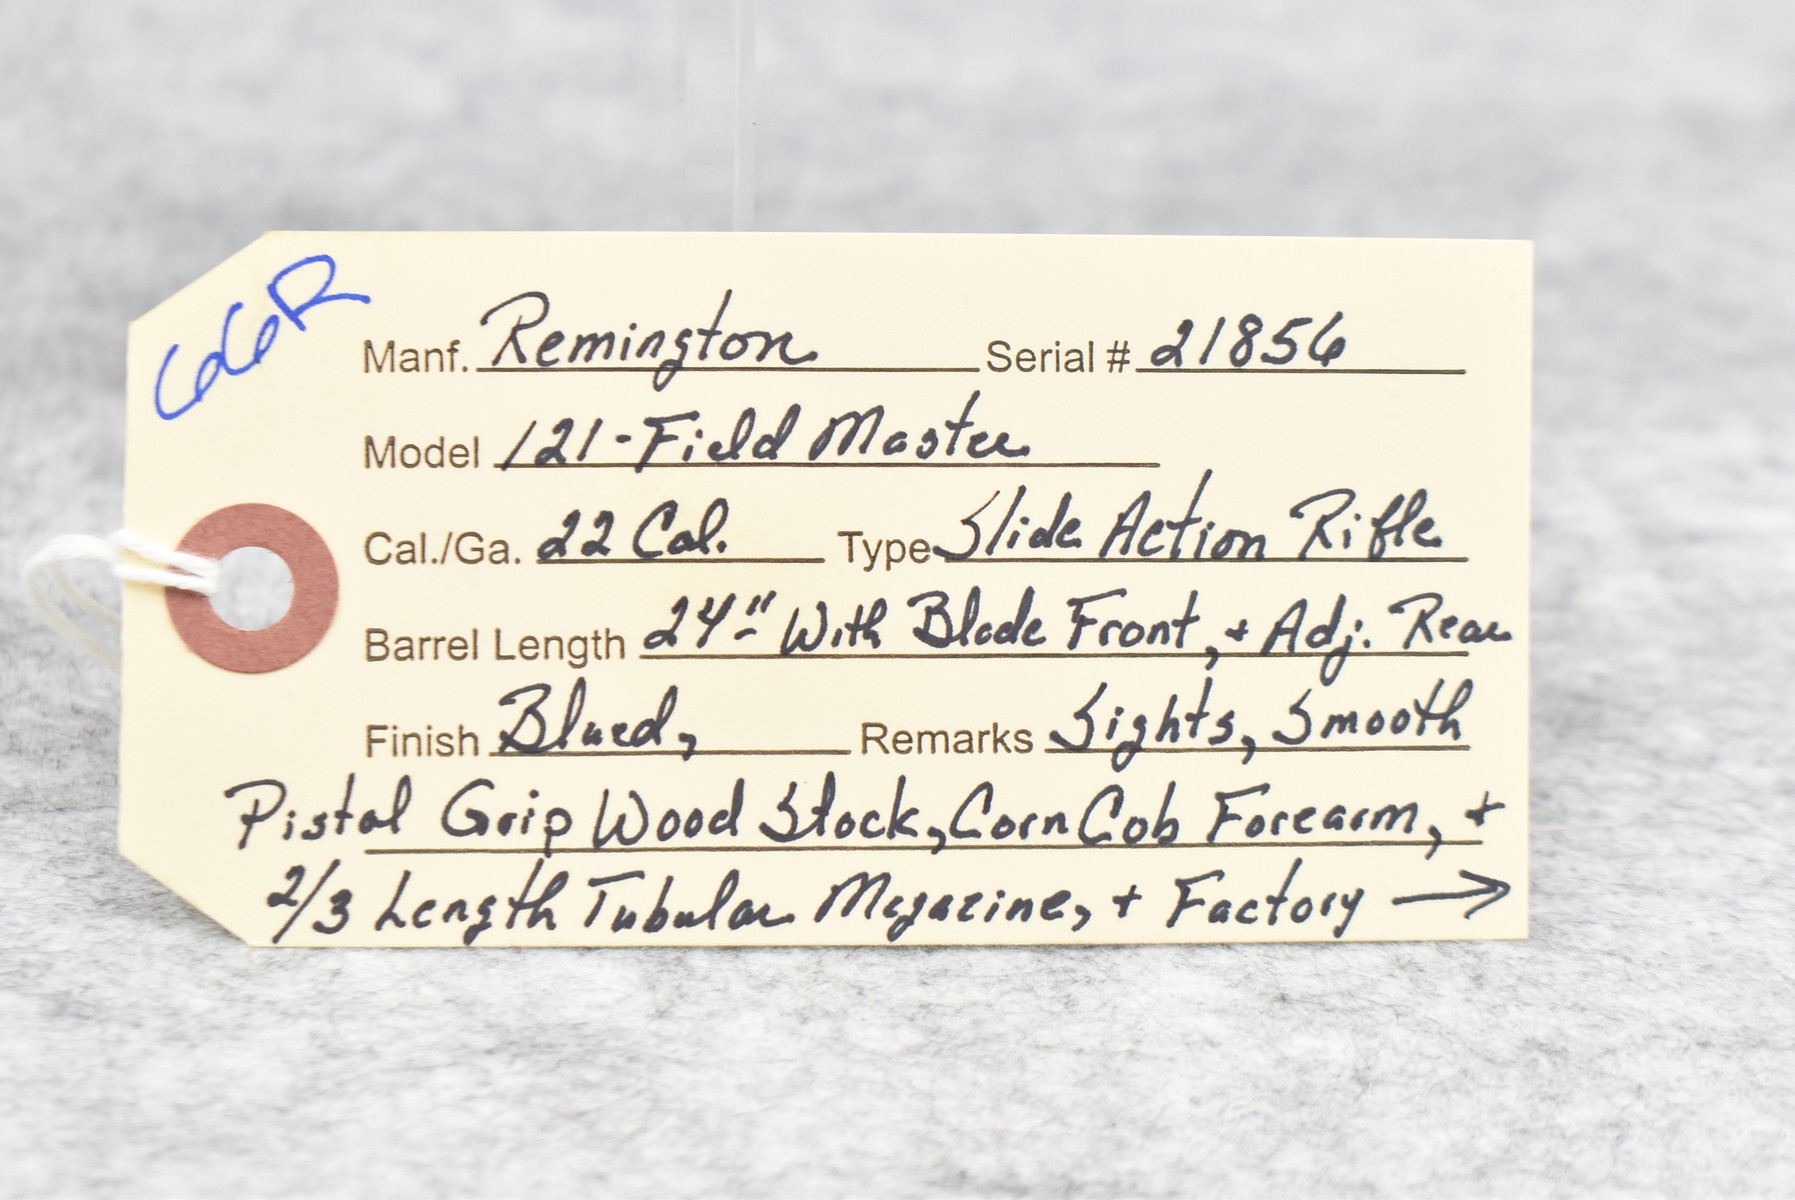 C&R
Manf. Remington Serial # 21856
Model 121-Field Master
Cal./Ga. 22 Cal. Type Slide Action Rifle
Barrel Length 24" With Blade Front, + Adj. Rear
Finish Blued, Remarks Sights, Smooth
Pistol Grip Wood Stock, Corn Cob Forearm, +
2/3 Length Tubular Magazine, + Factory →